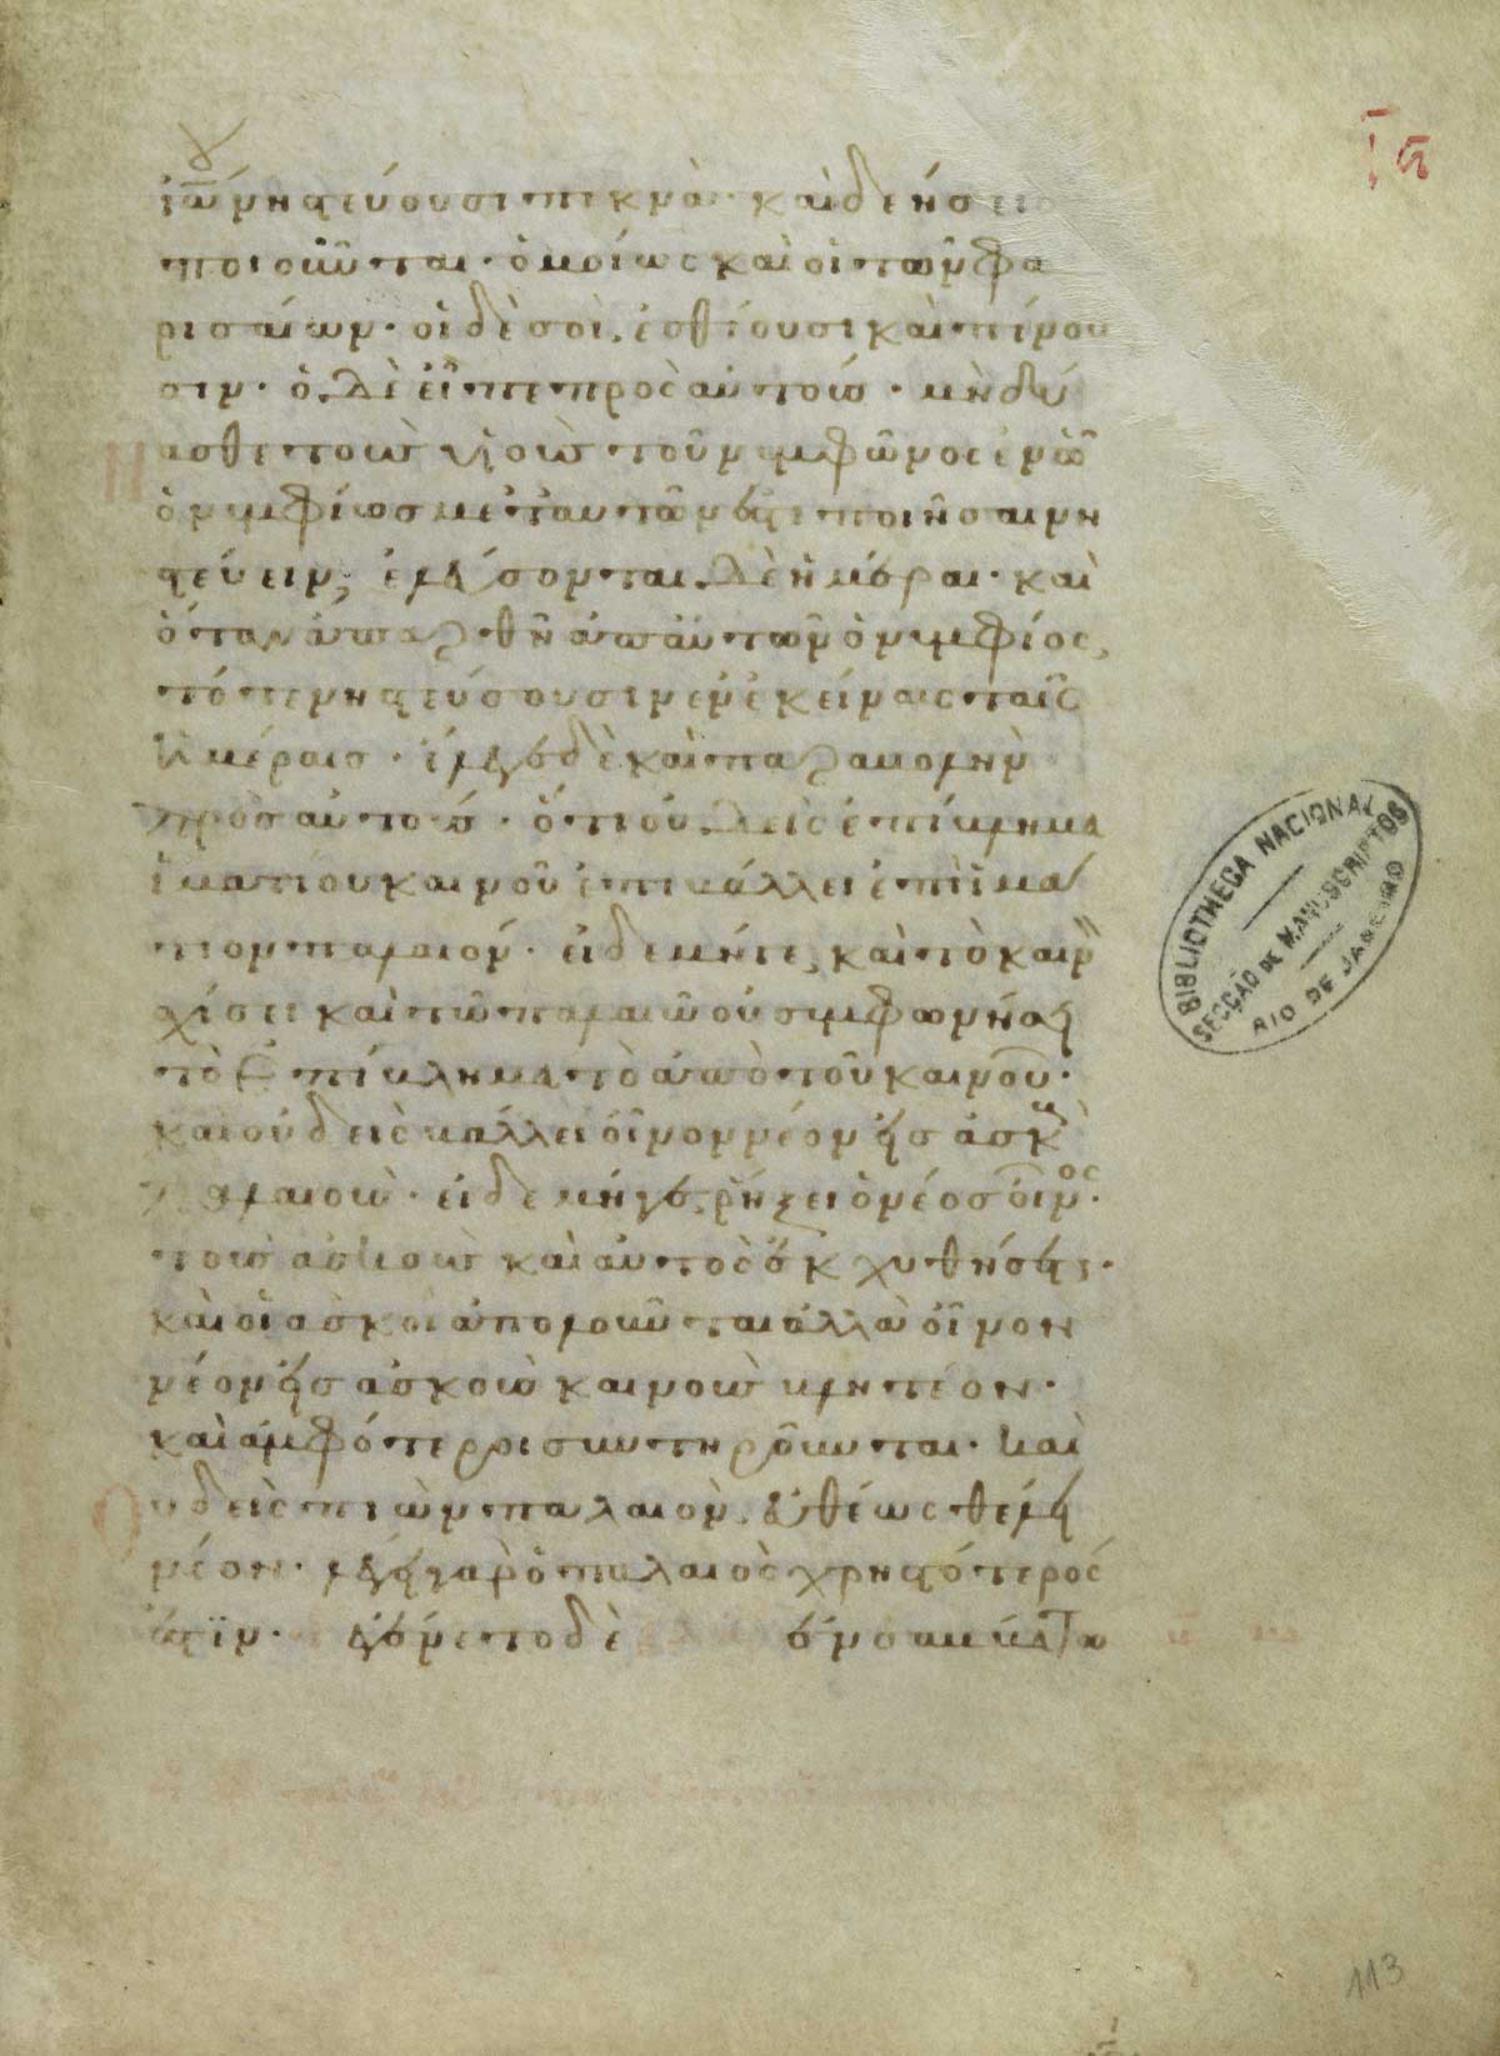 ῑς
ἰω̅ νηστεύουσι πυκνὰ· καὶ δεήσεις
ποιοῦνται· ὁμοίως καὶ οἱ τῶν φα
ρισαίων· οἱ δὲ σοὶ, ἐσθίουσι καὶ πίνου
σιν· ὁ δὲ εἶπε πρὸς αὐτούς· μὴ δύ
ασθε τοὺς υἱοὺς τοῦ νυμφῶνος ἐν ὧ
ὁ νυμφίος μετ' αὐτῶν ἐστι ποιῆσαι νη
στεύειν; ἐλεύσονται δὲ ἡμέραι· καὶ
ὅταν ἀπαρθῆ ἀπ' αὐτῶν ὁ νυμφίος,
τότε νηστεύσουσιν ἐν ἐκείναις ταῖς
ἡμέραις· ἔλεγε δὲ καὶ παραβολὴν
πρὸς αὐτοὺς· ὅτι οὐδεὶς ἐπίβλημα
ἱματίου καινοῦ ἐπιβάλλει ἐπὶ ἱμά
τιον παλαιόν· εἰ δὲ μήγε, καὶ τὸ καινὸν
χίσει καὶ τῶ παλαιῶ οὐ συμφωνήσει
τὸ ἐπίβλημα τὸ ἀπὸ τοῦ καινοῦ·
καὶ οὐδεὶς βάλλει οἶνον νέον εἰς ἀσκοὺς
παλαιοὺς· εἰ δὲ μήγε, ῥήξει ὁ νέος οἶνος·
τοὺς ἀσκοὺς καὶ αὐτὸς ἐκχυθήσεται·
καὶ οἱ ἀσκοὶ ἀπολοῦνται ἀλλὰ οἶνον
νέον εἰς ἀσκοὺς καινοὺς βλητέον·
καὶ ἀμφότεροι συντηροῦνται· καὶ
Οὐδεὶς πιὼν παλαιὸν, εὐθέως θέλει
νέον· λέγει γὰρ ὁ παλαιὸς χρηστότερός
ἐστϊν· ἐγένετο δὲ ἐν σαββάτω
BIBLIOTHECA NACIONAL
SECÇÃO DE MANUSCRIPTOS
RIO DE JANEIRO
113